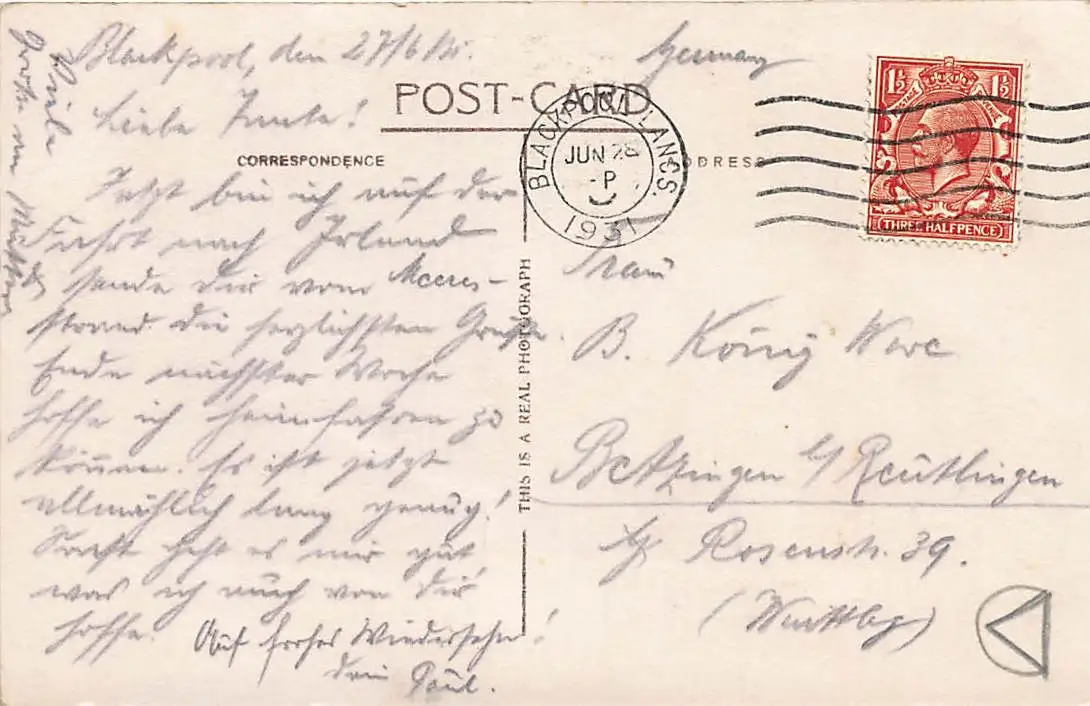 Blackpool, den 27/6 31.
Liebe Tante!
Jetzt bin ich auf der
Fahrt nach Irland
sende dir vom Meeres-
strand die herzlichsten Grüße
Ende nächster Woche
hoffe ich heimfahren zu
können. Es ist jetzt
allmählich lang genug!
Sonst geht es mir gut
was ich auch von Dir
hoffe. Auf frohes Wiedersehn!
dein Paul.
Viele
Grüße an
POST-CARD
CORRESPONDENCE
ADDRESS
THIS IS A REAL PHOTOGRAPH
BLACKPOOL LANCS.
JUN 28
-P
1931
1½ 1½
POSTAGE REVENUE
(THREE HALFPENCE)
Germany
Frau
B. König Wwe
Betzingen b/ Reutlingen
Rosenstr. 39.
(Württbg)